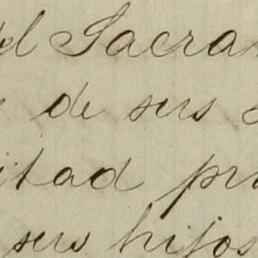 d Sacra
de sus
itad pr
sus hijos